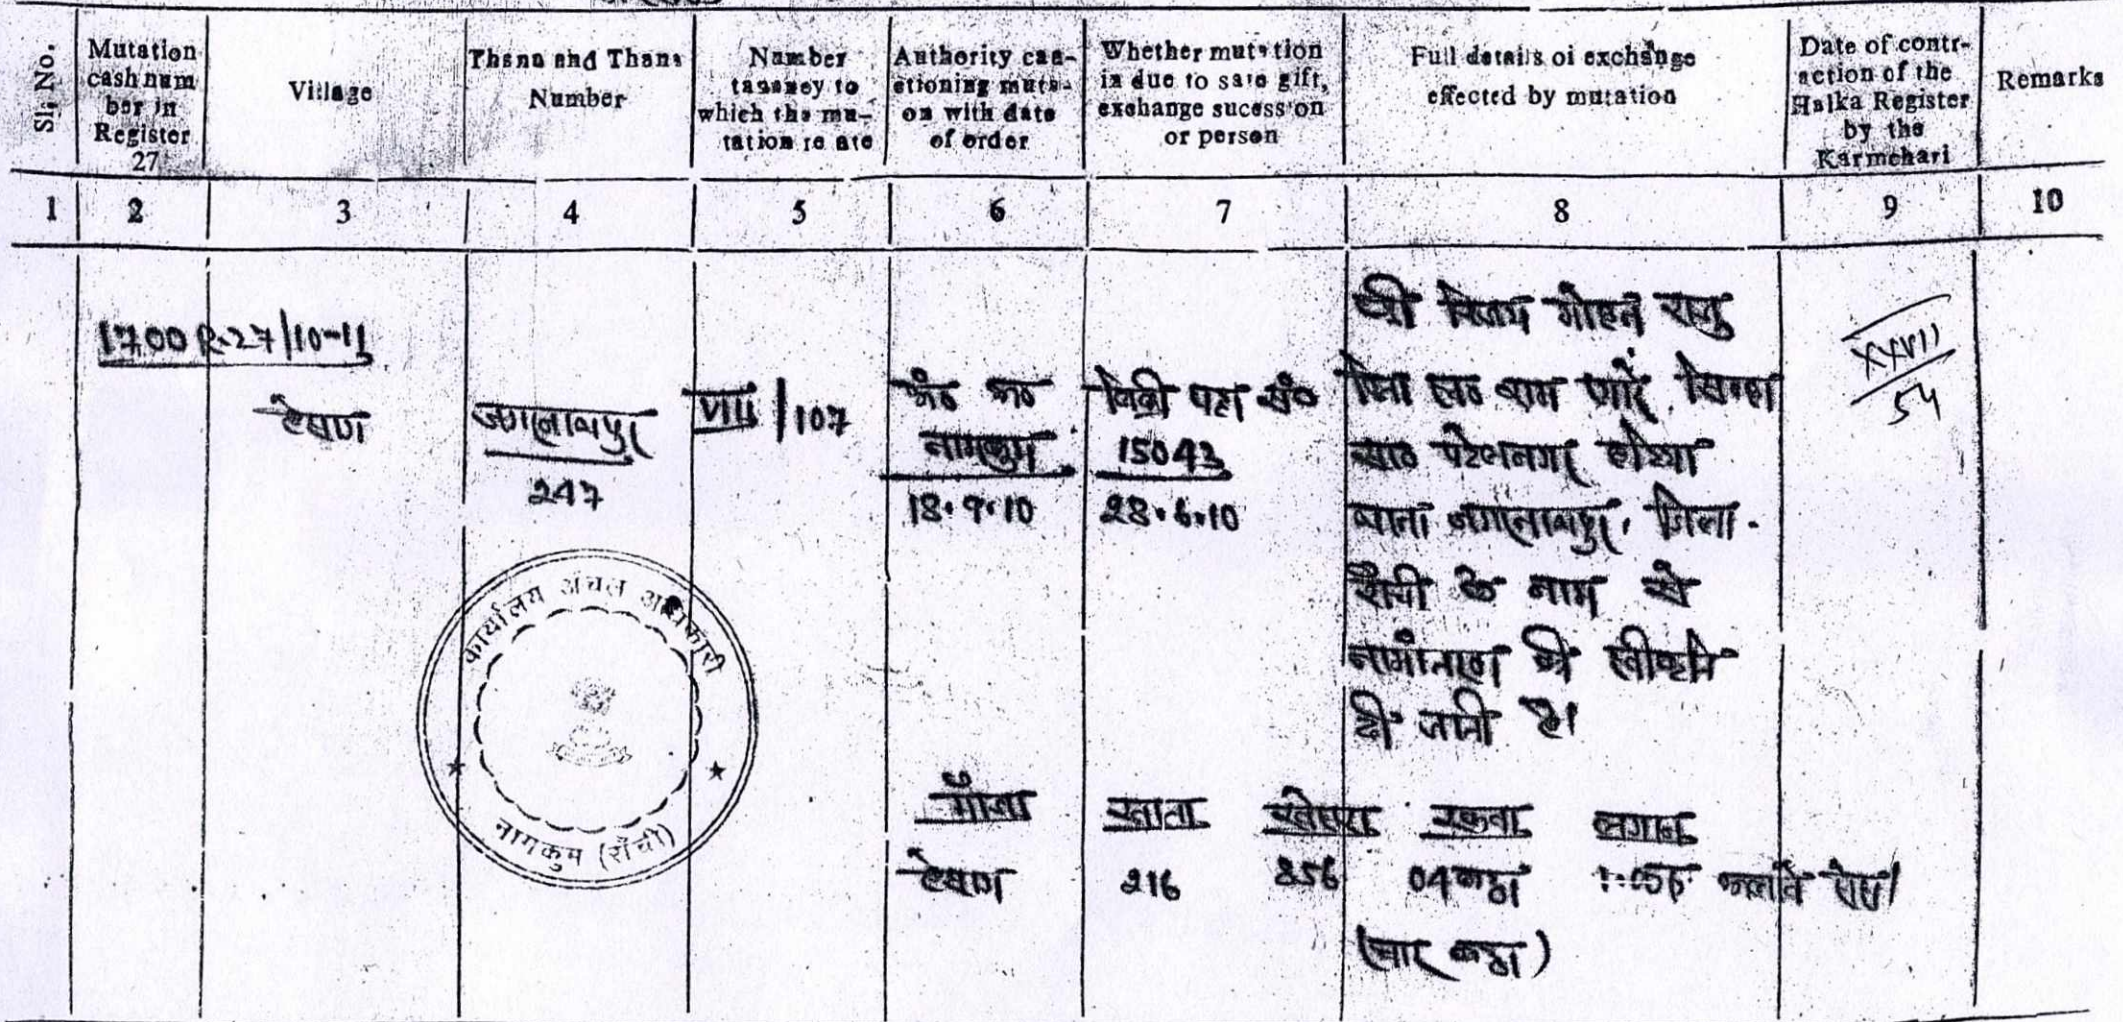 Sl; No.
Mutation cash num ber in Register 27
Village
Thana and Thana Number
Number tananey to which the mu- tation re ate
Authority can- ctioning muta- on with date of order
Whether mutation is due to sale gift, exchange sucess on or person
Full details oi exchange effected by mutation
Date of contr- action of the Halka Register by the Karmchari
Remarks
1 2 3 4 5 6 7 8 9 10
1700 R-27/10-11
हेथण
जगन्नाथपुर
247
VIII/107
अं० अ०
नामकुम
18.9.10
विक्री पट्टा सं०
15043
28.6.10
श्री विजय मोहन
पिता स्व० राम प्यारे सिन्हा
सा० पटेलनगर हटिया
थाना जगन्नाथपुर, जिला-
राँची के नाम से
नामांतरण की स्वीकृति
दी जाती है।
XXVII
54
कार्यालय अंचल अधिकारी
नामकुम (राँची)
मौजा खाता खेसरा रकबा लगान
हेथण 216 856 04 कट्ठा
(चार कट्ठा)